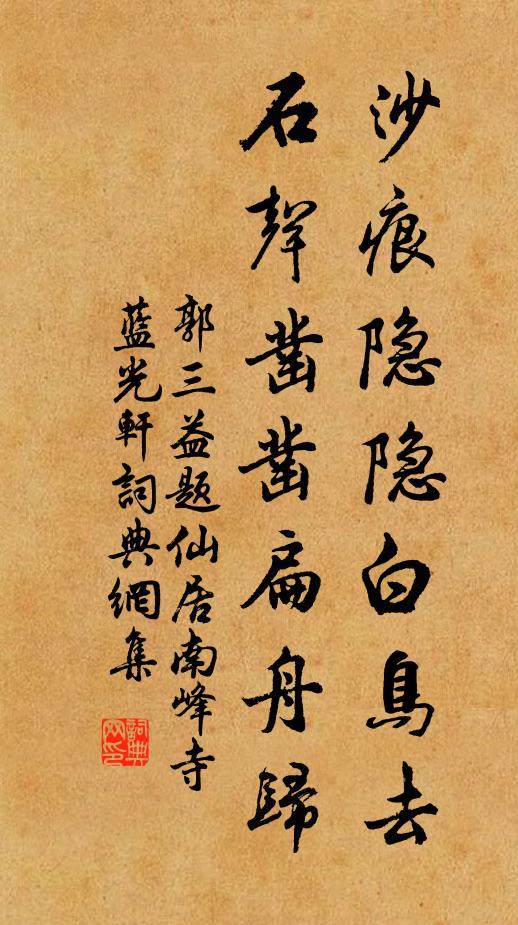 沙痕隐隐白鳥去
石聲凿凿扁舟歸
郭三益题仙居南峰寺
藍光軒詞典網集
詞典网印